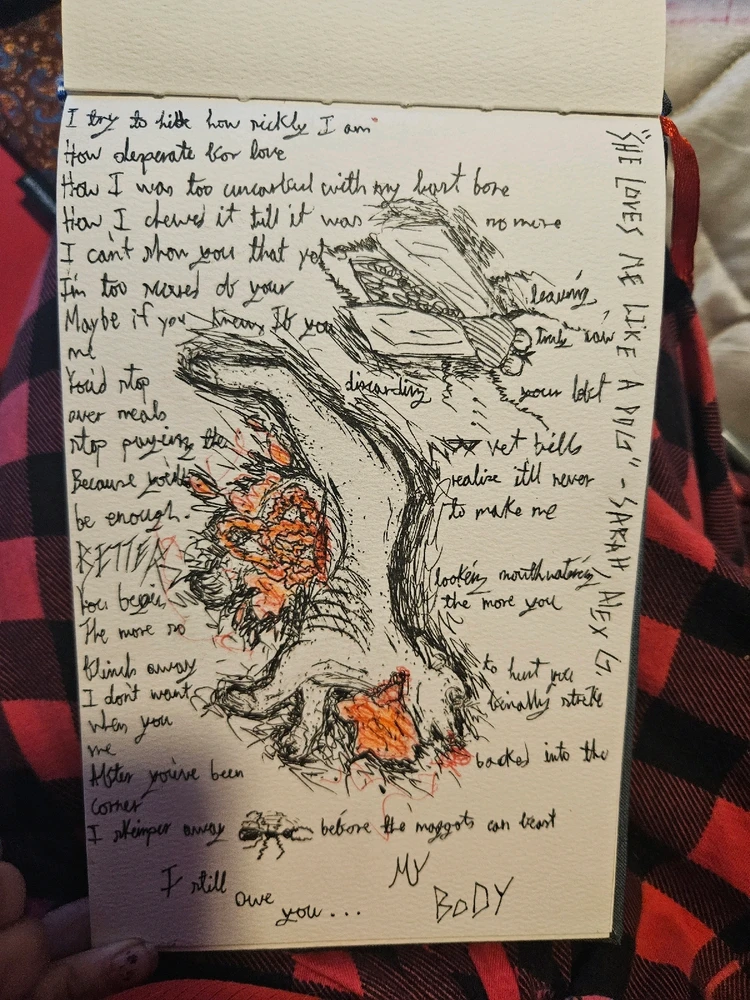 I try to hide how sickly I am
How desperate for love
How I was too uncareful with my last bone
How I chewed it till it was no more
I can't show you that yet
I'm too scared of your leaving
Maybe if you knew, If you truly saw
me discarding your lost
You'd stop
over meals
stop paying the vet bills
Because you'll realize it'll never
be enough. to make me
BETTER
You begin looking mouthwatering
The more so the more you
flinch away
I dont want to hurt you
when you finally strike
me
After you've been backed into the
corner
I skimper away before the maggots can feast
I still owe you... MY BODY
"SHE LOVES ME LIKE A DOG" - SARAH, ALEX G.